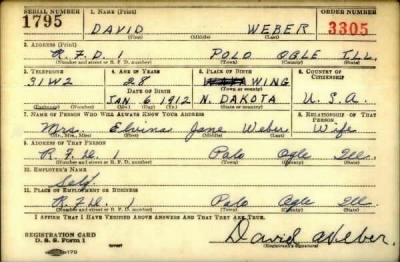 SERIAL NUMBER 1. NAME (Print) ORDER NUMBER
1795 DAVID WEBER 3305
(First) (Middle) (Last)
2. ADDRESS (Print)
R.F.D. 1 POLO OGLE ILL.
(Number and street or R. F. D. number) (Town) (County) (State)
3. TELEPHONE 4. AGE IN YEARS 5. PLACE OF BIRTH 6. COUNTRY OF CITIZENSHIP
31W2 28 WING
DATE OF BIRTH (Town or county)
JAN. 6 1912 N. DAKOTA U.S.A.
(Exchange) (Number) (Mo.) (Day) (Yr.) (State or country)
7. NAME OF PERSON WHO WILL ALWAYS KNOW YOUR ADDRESS 8. RELATIONSHIP OF THAT PERSON
Mrs. Elvina Jane Weber Wife
(Mr., Mrs., Miss) (First) (Middle) (Last)
9. ADDRESS OF THAT PERSON
R.F.D. 1 Polo Ogle Ill.
(Number and street or R. F. D. number) (Town) (County) (State)
10. EMPLOYER'S NAME
Self
11. PLACE OF EMPLOYMENT OR BUSINESS
R.F.D. 1 Polo Ogle Ill
(Number and street or R. F. D. number) (Town) (County) (State)
I AFFIRM THAT I HAVE VERIFIED ABOVE ANSWERS AND THAT THEY ARE TRUE.
REGISTRATION CARD David Weber
D. S. S. Form 1 (Registrant's signature)